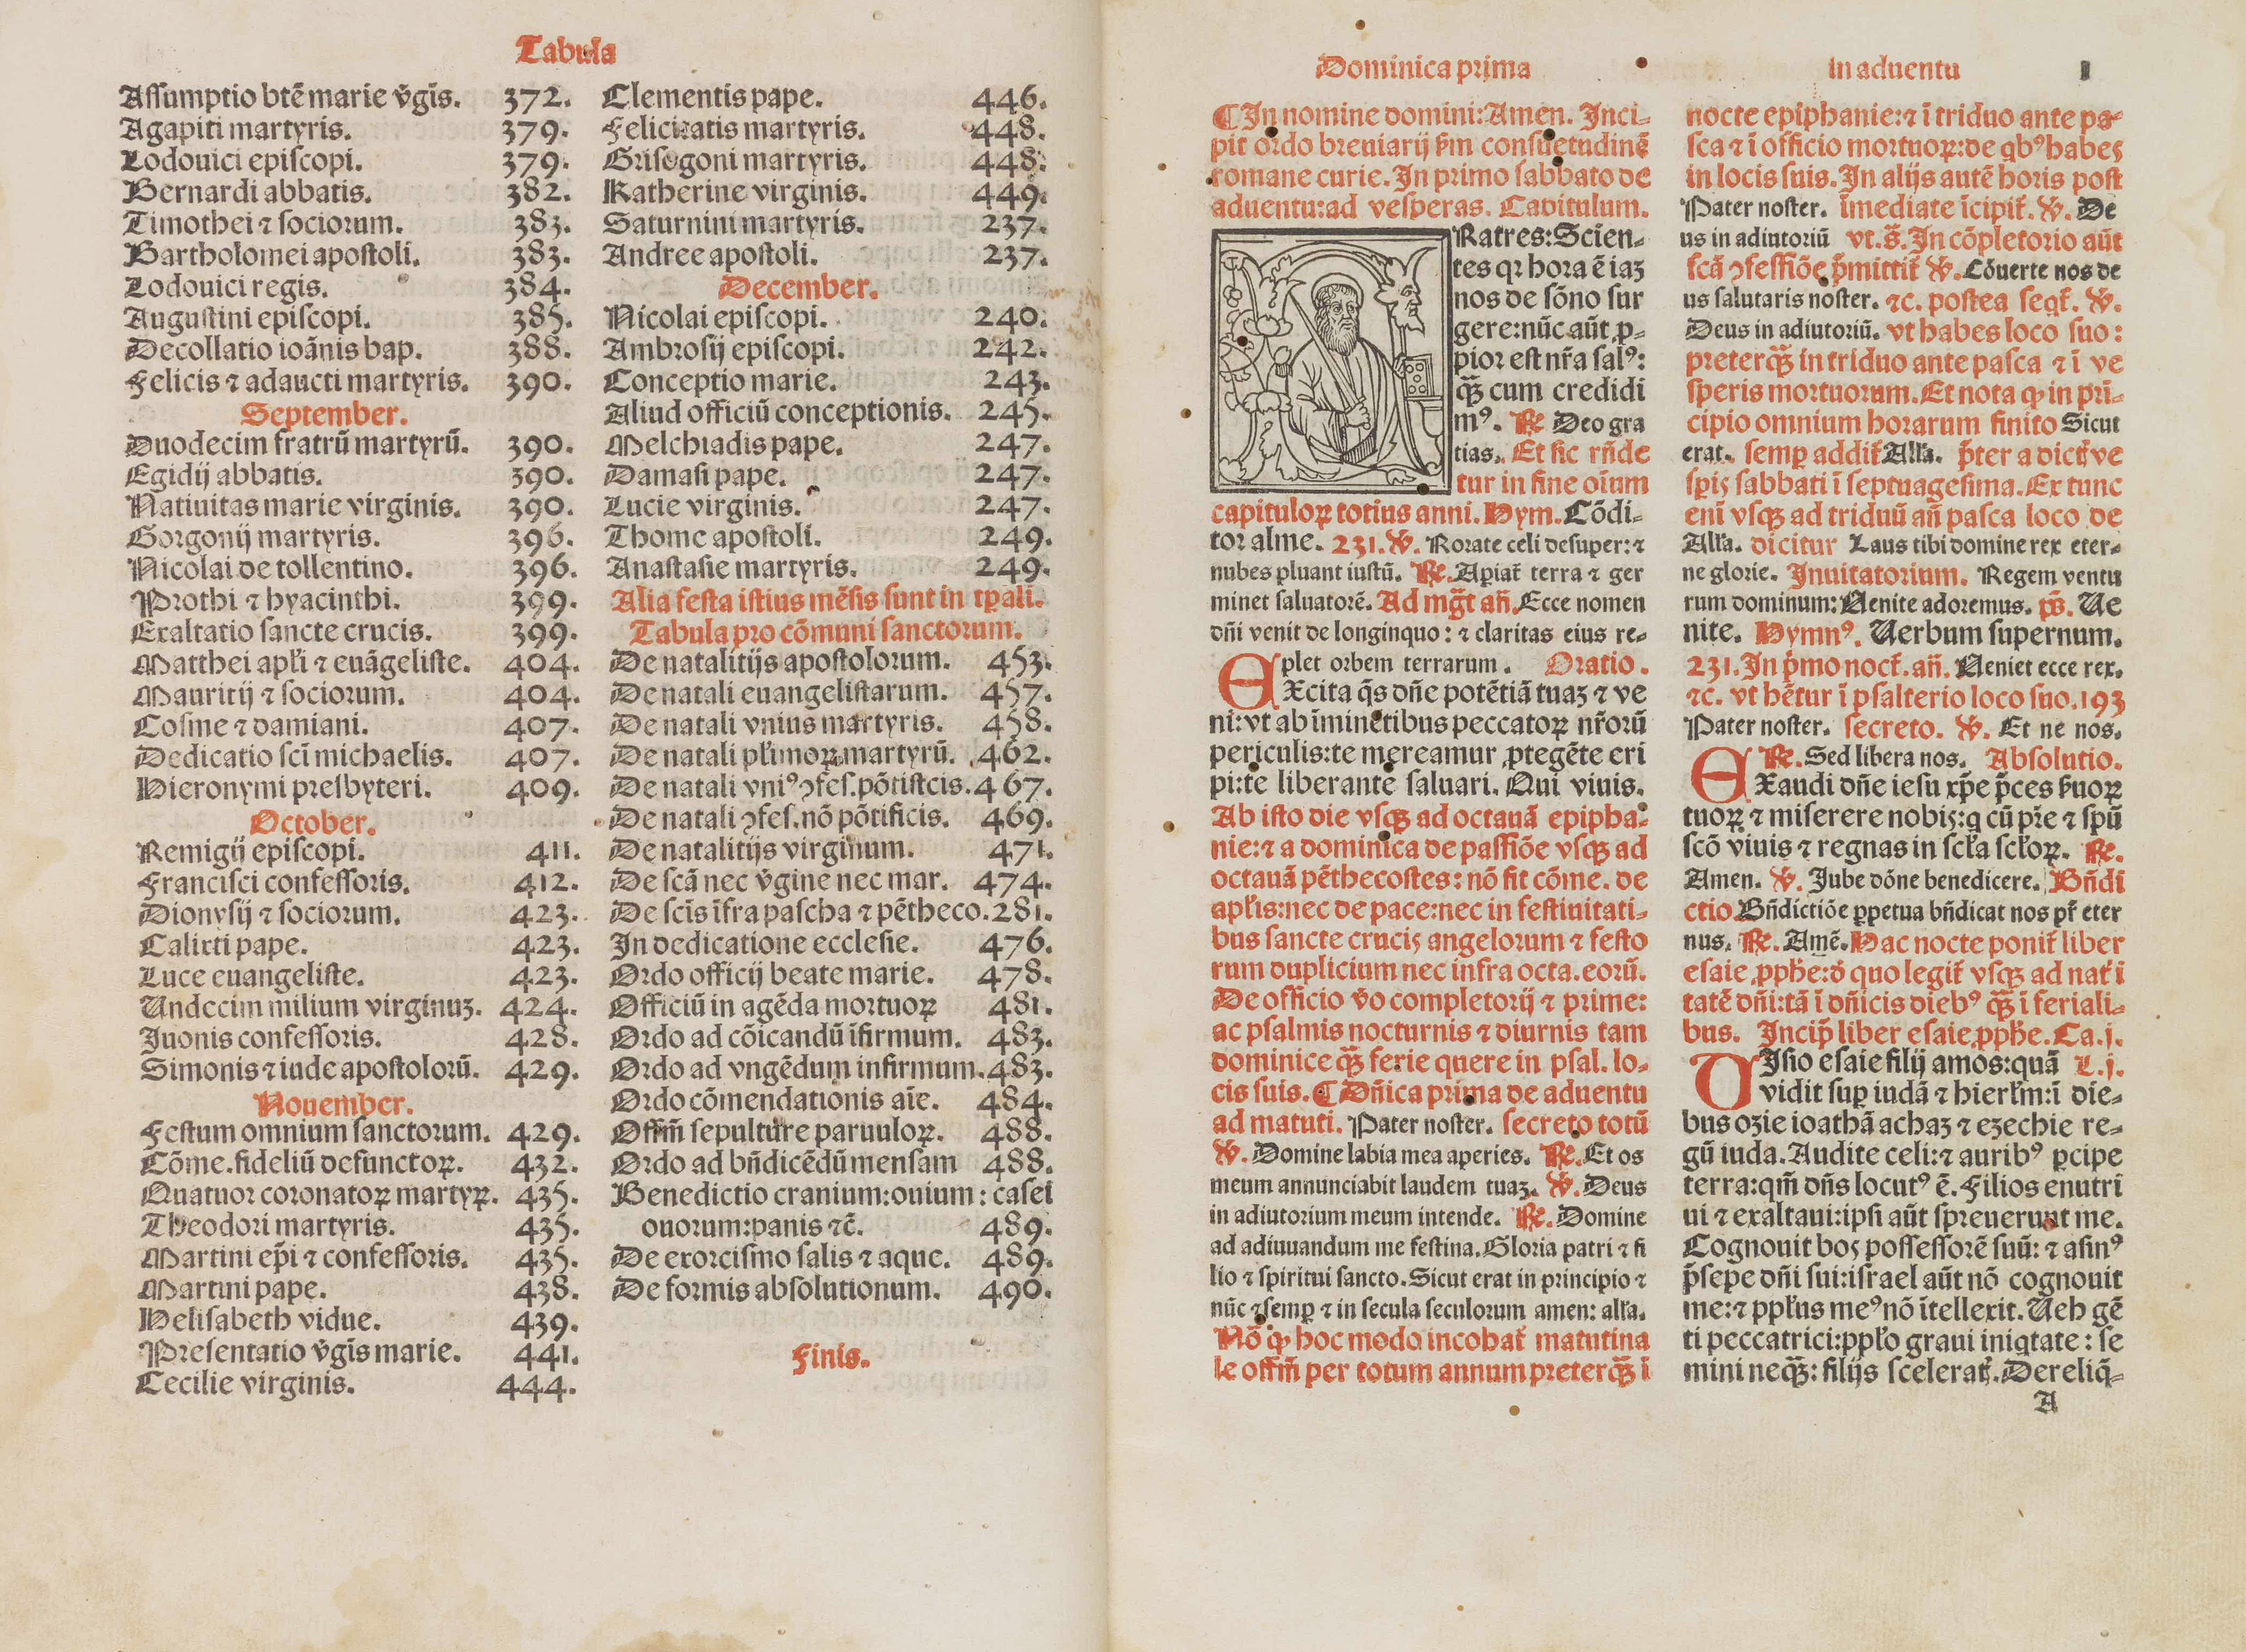 Tabula
Assumptio btē marie v̄gīs. 372.
Agapiti martyris. 379.
Lodouici episcopi. 379.
Bernardi abbatis. 382.
Timothei ⁊ sociorum. 383.
Bartholomei apostoli. 383.
Lodouici regis. 384.
Augustini episcopi. 385.
Decollatio ioānis bap. 388.
Felicis ⁊ adaucti martyris. 390.
September.
Duodecim fratrū martyrū. 390.
Egidij abbatis. 390.
Natiuitas marie virginis. 390.
Gorgonij martyris. 396.
Nicolai de tollentino. 396.
Prothi ⁊ hyacinthi. 399.
Exaltatio sancte crucis. 399.
Matthei apl'i ⁊ euāgeliste. 404.
Mauritij ⁊ sociorum. 404.
Cosme ⁊ damiani. 407.
Dedicatio scī michaelis. 407.
Hieronymi presbyteri. 409.
October.
Remigij episcopi. 411.
Francisci confessoris. 412.
Dionysij ⁊ sociorum. 423.
Calixti pape. 423.
Luce euangeliste. 423.
Undecim milium virginuꝫ. 424.
Juonis confessoris. 428.
Simonis ⁊ iude apostolorū. 429.
Nouember.
Festum omnium sanctorum. 429.
Cōme. fideliū defunctoꝝ. 432.
Quatuor coronatoꝝ martyꝝ. 435.
Theodori martyris. 435.
Martini ep̄i ⁊ confessoris. 435.
Martini pape. 438.
Helisabeth vidue. 439.
Presentatio v̄gīs marie. 441.
Cecilie virginis. 444.
Clementis pape. 446.
Felicitatis martyris. 448.
Grisogoni martyris. 448.
Katherine virginis. 449.
Saturnini martyris. 237.
Andree apostoli. 237.
December.
Nicolai episcopi. 240.
Ambrosij episcopi. 242.
Conceptio marie. 243.
Aliud officiū conceptionis. 245.
Melchiadis pape. 247.
Damasi pape. 247.
Lucie virginis. 247.
Thome apostoli. 249.
Anastasie martyris. 249.
Alia festa istius mēsis sunt in tp̄ali.
Tabula pro cōmuni sanctorum.
De natalitijs apostolorum. 453.
De natali euangelistarum. 457.
De natali vnius martyris. 458.
De natali pl'imoꝝ martyrū. 462.
De natali vniꝰ ꝯfes. pōtistcis. 467.
De natali ꝯfes. nō pōtificis. 469.
De natalitijs virginum. 471.
De scā nec v̄gine nec mar. 474.
De scīs īfra pascha ⁊ pētheco. 281.
In dedicatione ecclesie. 476.
Ordo officij beate marie. 478.
Officiū in agēda mortuoꝝ 481.
Ordo ad cōicandū īfirmum. 483.
Ordo ad vngēdum infirmum. 483.
Ordo cōmendationis aīe. 484.
Offm̄ sepulture paruuloꝝ. 488.
Ordo ad bn̄dicēdū mensam 488.
Benedictio cranium: ouium: casei
ouorum: panis ⁊c̄. 489.
De exorcismo salis ⁊ aque. 489.
De formis absolutionum. 490.
Finis.
Dominica prima In aduentu 1
¶ In nomine domini: Amen. Inci-
pit ordo breuiarij s̄m consuetudinē
romane curie. In primo sabbato de
aduentu: ad vesperas. Capitulum.
Ratres: Scien-
tes qꝛ hora ē iaꝫ
nos de sōno sur
gere: nūc aūt ꝓ-
pior est nr̄a salꝰ:
qꝫ̄ cum credidi
mꝰ. ℞ Deo gra
tias. Et sic rn̄de
tur in fine oīum
capituloꝝ totius anni. Hym. Cōdi-
tor alme. 231. ℣. Rorate celi desuper: ⁊
nubes pluant iustū. ℞. Apiat̄ terra ⁊ ger
minet saluatorē. Ad mḡt an̄. Ecce nomen
dn̄i venit de longinquo: ⁊ claritas eius re-
plet orbem terrarum. Oratio.
EXcita qs̄ dn̄e potētiā tuaꝫ ⁊ ve
ni: vt ab īminētibus peccatoꝝ nr̄orū
periculis: te mereamur ꝓtegēte eri
pi: te liberante saluari. Qui viuis.
Ab isto die vsqꝫ ad octauā epipha-
nie: ⁊ a dominica de passiōe vsqꝫ ad
octauā pēthecostes: nō fit cōme. de
apl'is: nec de pace: nec in festiuitati-
bus sancte crucis angelorum ⁊ festo
rum duplicium nec infra octa. eorū.
De officio v̄o completorij ⁊ prime:
ac psalmis nocturnis ⁊ diurnis tam
dominice qꝫ̄ ferie quere in psal. lo-
cis suis. ¶ Dn̄ica prima de aduentu
ad matuti. Pater noster. secreto totū
℣. Domine labia mea aperies. ℞. Et os
meum annunciabit laudem tuaꝫ. ℣. Deus
in adiutorium meum intende. ℞. Domine
ad adiuuandum me festina. Gloria patri ⁊ fi
lio ⁊ spiritui sancto. Sicut erat in principio ⁊
nūc ⁊ semꝑ ⁊ in secula seculorum amen: all'a.
Nō ꝙ hoc modo incohat̄ matutina
le offm̄ per totum annum preterqꝫ̄ ī
nocte epiphanie: ⁊ ī triduo ante pa-
sca ⁊ ī officio mortuoꝝ: de qbꝰ habes
in locis suis. In alijs autē horis post
Pater noster. īmediate īcipit̄. ℣. De
us in adiutoriū vt. s̄. In cōpletorio aūt
scā ꝯfessiōe p̄mittit̄ ℣. Cōuerte nos de
us salutaris noster. ⁊c. postea seqt̄. ℣.
Deus in adiutoriū. vt habes loco suo:
preterqꝫ̄ in triduo ante pasca ⁊ ī ve
speris mortuorum. Et nota ꝙ in pri-
cipio omnium horarum finito Sicut
erat. semꝑ addit̄ All'a. p̄ter a dict̄ ve
sꝑis sabbati ī septuagesima. Ex tunc
enī vsqꝫ ad triduū an̄ pasca loco de
All'a. dicitur Laus tibi domine rex eter-
ne glorie. Inuitatorium. Regem ventu
rum dominum: Uenite adoremus. ps̄. Ue
nite. Hymnꝰ. Uerbum supernum.
231. In p̄mo noct̄. an̄. Ueniet ecce rex.
⁊c. vt hētur ī psalterio loco suo. 193
Pater noster. secreto. ℣. Et ne nos.
℞. Sed libera nos. Absolutio.
EXaudi dn̄e iesu xp̄e p̄ces s̄uoꝝ
tuoꝝ ⁊ miserere nobis: q cū pr̄e ⁊ spū
scō viuis ⁊ regnas in scl'a scl'oꝝ. ℞.
Amen. ℣. Jube dōne benedicere. Bn̄di
ctio Bn̄dictiōe ꝑpetua bn̄dicat nos pr̄ eter
nus. ℞. Amē. Hac nocte ponit̄ liber
esaie ꝓph̄e: d̄ quo legit̄ vsqꝫ ad nat̄i
tatē dn̄i: tā ī dn̄icis diebꝰ qꝫ̄ ī feriali-
bus. Incip̄ liber esaie ꝓph̄e. Ca. j.
UIsio esaie filij amos: quā L. j.
vidit suꝑ iudā ⁊ hierl'm: ī die-
bus ozie ioathā achaz ⁊ ezechie re-
gū iuda. Audite celi: ⁊ auribꝰ ꝑcipe
terra: qm̄ dn̄s locutꝰ ē. Filios enutri
ui ⁊ exaltaui: ipsi aūt spreuerunt me.
Cognouit bos possessorē suū: ⁊ asinꝰ
p̄sepe dn̄i sui: israel aūt nō cognouit
me: ⁊ ppl'us meꝰ nō ītellexit. Ueh gē
ti peccatrici: ppl'o graui iniqtate: se
mini neqꝫ̄: filijs scelerat̄. Dereliq̄-
A